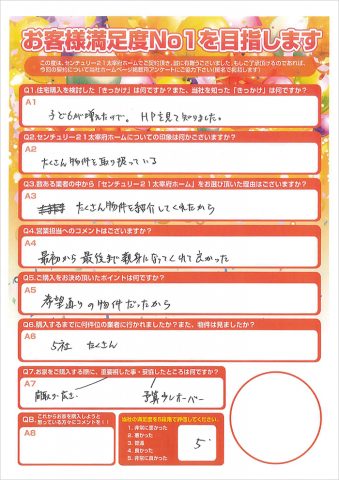 お客様満足度No1を目指します
この度は、センチュリー21太宰府ホームでご契約頂き、誠に有難うございました。もしご了承頂けるのであれば、
今回の契約について当社ホームページ掲載用アンケートにご協力下さい(匿名で掲載します)
Q1.住宅購入を検討した「きっかけ」は何ですか?また、当社を知った「きっかけ」は何ですか?
A1
子どもが増えたので。 HPを見て知りました。
Q2.センチュリー21太宰府ホームについての印象は何かございますか?
A2
たくさん物件を取り扱っている
Q3.数ある業者の中から「センチュリー21太宰府ホーム」をお選び頂いた理由はございますか?
A3
たくさん物件を紹介してくれたから
Q4.営業担当へのコメントはございますか?
A4
最初から最後まで親身になってくれて良かった
Q5.ご購入をお決め頂いたポイントは何ですか?
A5
希望通りの物件だったから
Q6.購入するまでに何件位の業者に行かれましたか?また、物件は見ましたか?
A6
5社 たくさん
Q7.お家をご購入する際に、重要視した事・妥協したところは何ですか?
A7
間取り・広さ 予算少しオーバー
Q8. これからお家を購入しようと
思っている方々にコメントを!!
A8
当社の満足度を5段階で評価してください。
1. 非常に悪かった
2. 悪かった
3. 普通
4. 良かった
5. 非常に良かった
5